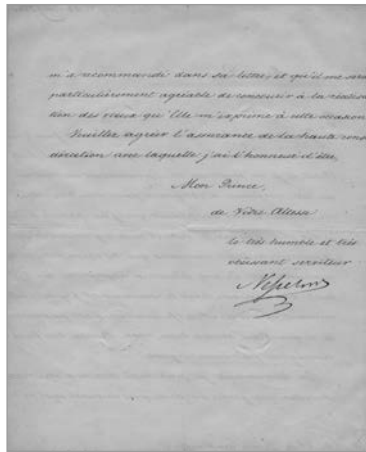 m'a recommandé dans sa lettre, et qu'il me sera
particulièrement agréable de concourir à la réalisa-
tion des voeux qu'Elle m'exprime à cette occasion.
Veuillez agréer l'assurance de la haute consi-
dération avec laquelle j'ai l'honneur d'être,
Mon Prince,
de Votre Altesse
le très humble et très
obéissant serviteur